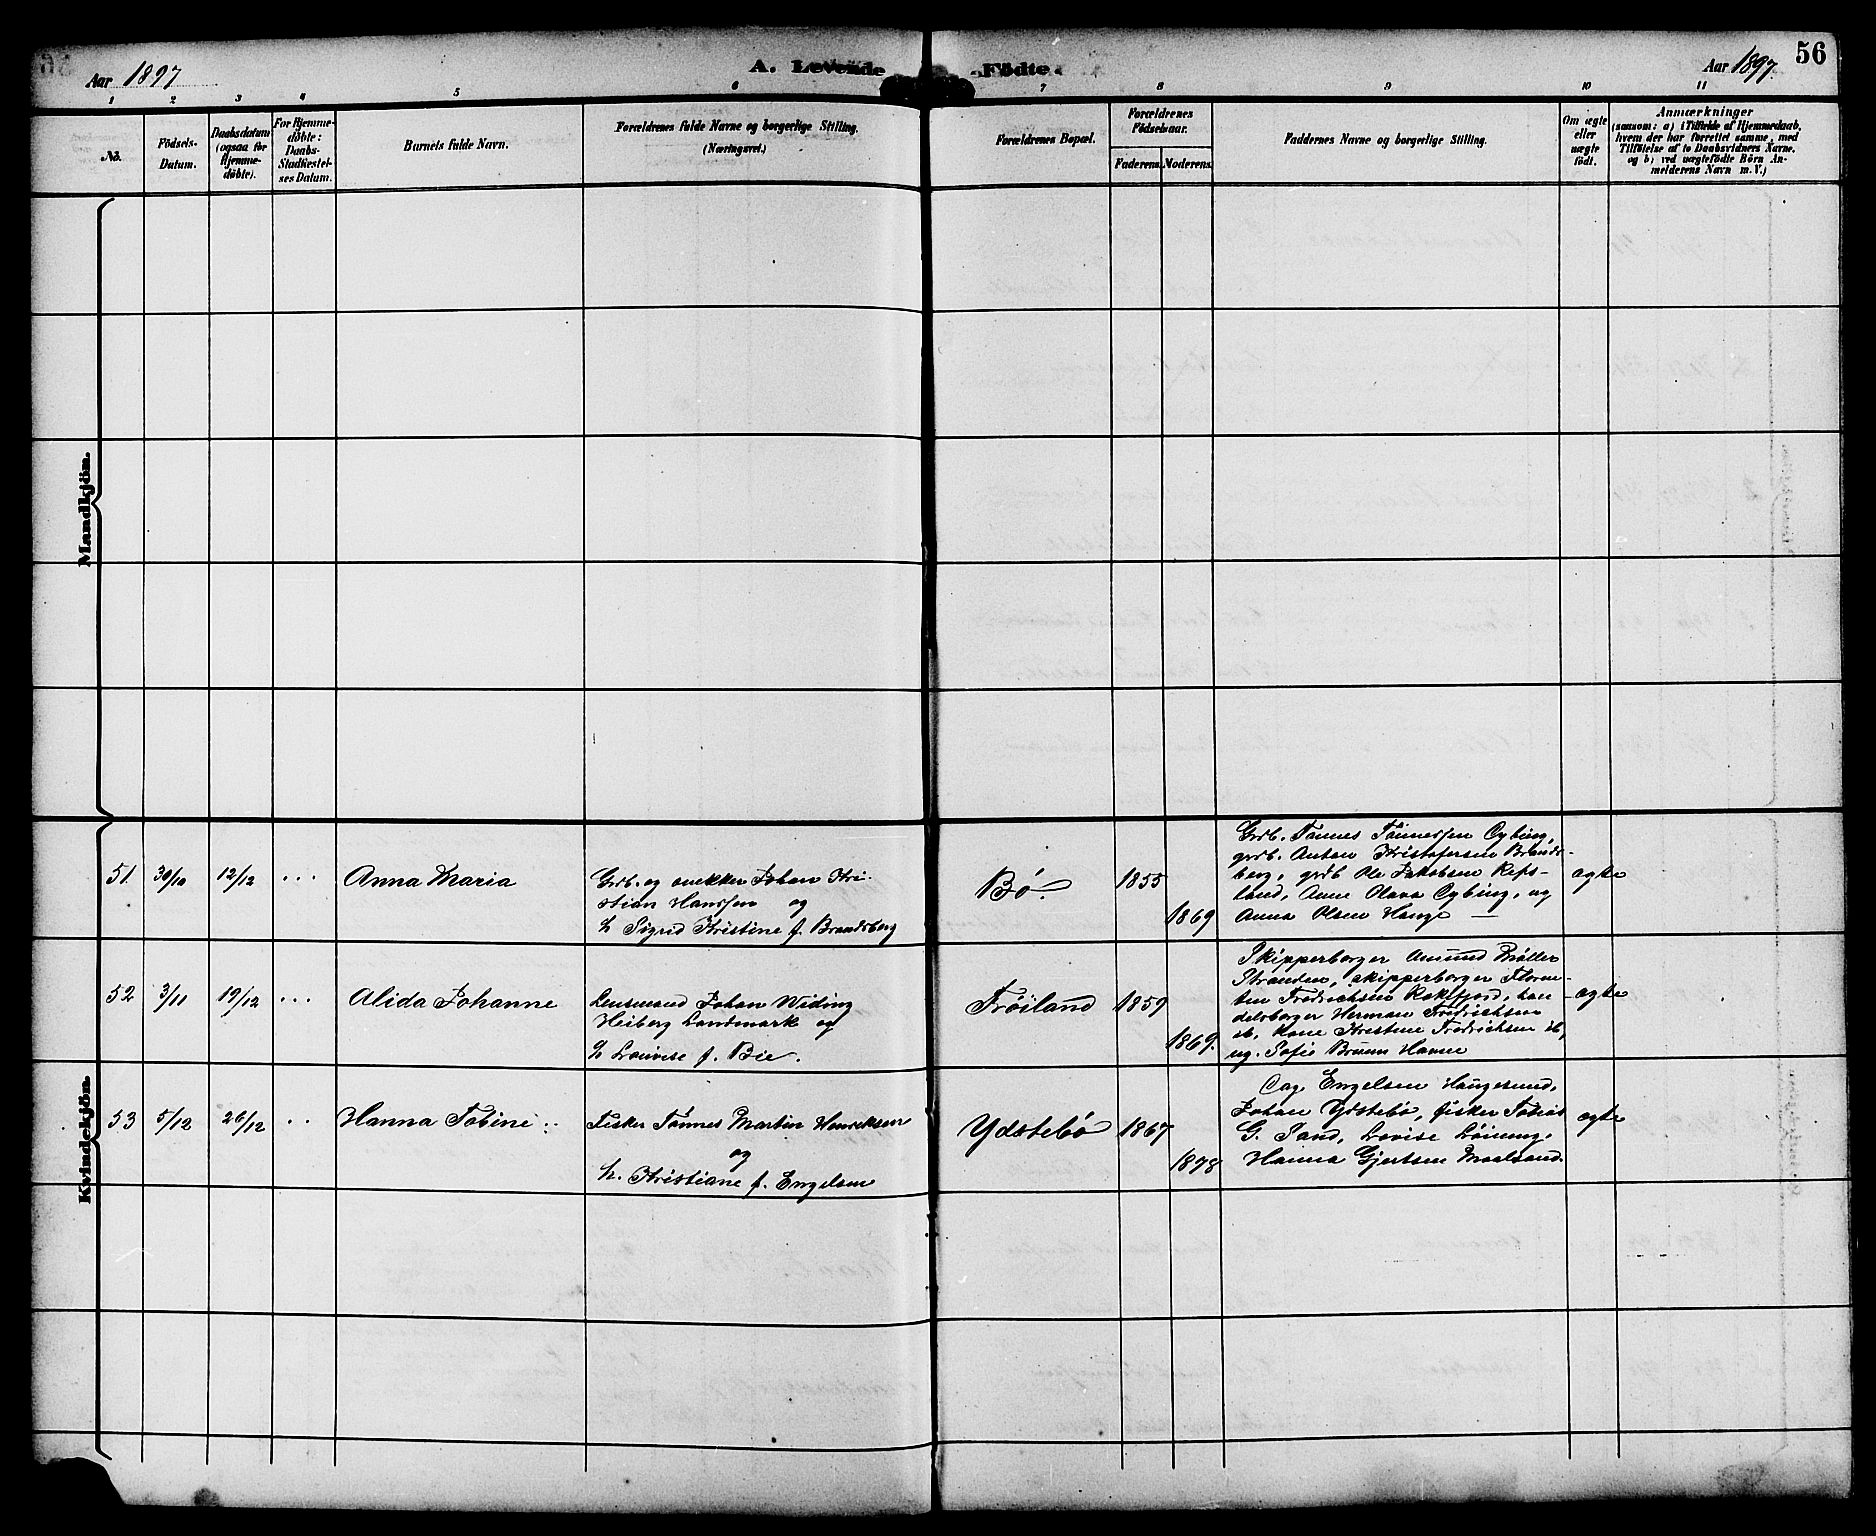 Aar 1897
A. Levende Fødte.
Aar 1897.
56
1 2 3 4 5 6 7 8 9 10 11
No.
Födsels-
Datum.
Daabsdatum
(ogsaa for
Hjemme-
döbte).
For Hjemme-
döbte:
Daabs-
Stadfæstel-
ses Datum.
Barnets fulde Navn.
Forældrenes fulde Navne og borgerlige Stilling.
(Næringsvei.)
Forældrenes Bopæl.
Forældrenes
Födselsaar.
Faderens. Moderens.
Faddernes Navne og borgerlige Stilling.
Om ægte
eller
uægte
födt.
Anmærkninger
(saasom: a) i Tilfælde af Hjemmedaab,
hvem der har forrettet samme, med
Tilföielse af to Daabsvidners Navne,
og b) ved uægtefödte Börn An-
melderens Navn m.V.)
Mandkjön.
Kvindekjön.
51. 30/10 12/12 . . . Anna Maria
Grdb. og snekker Johan Kri-
stian Hanssen og
h Sigrid Kristine f. Brandsberg
Bö.
1855
1869
Grdb. Tönnes Tönnessen
grdb. Anton Kristofersen Brands-
berg, grdb Ole Jakobsen Refs-
land, Anne Olava og
Anna Olsen Hauge
ægte
52 3/11 19/12 . . . Alida Johanne
Lensmand Johan Widing
Heiberg Landmark og
h Lovise f. Bie.
Fröiland
1859
1869.
Skipperborger Amund Möller
Stranden, skipperborger
Fredrichsen Rekefjord, han-
delsborger Herman Fredrichsen
ib, Kone Kirstine Fredrichsen ib,
ug. Sofie Bruun Havne
ægte
53 5/12 26/12 . . Hanna Tobine
Fisker Tönnes Martin Henriksen
og
h. Kristiane f. Engelsen
Ydstebö
1867
1878
Engelsen Haugesund,
Johan Ydstebö, fisker Tobias
G. Sand, Lovise Löining,
Hanna Gjertsen
ægte